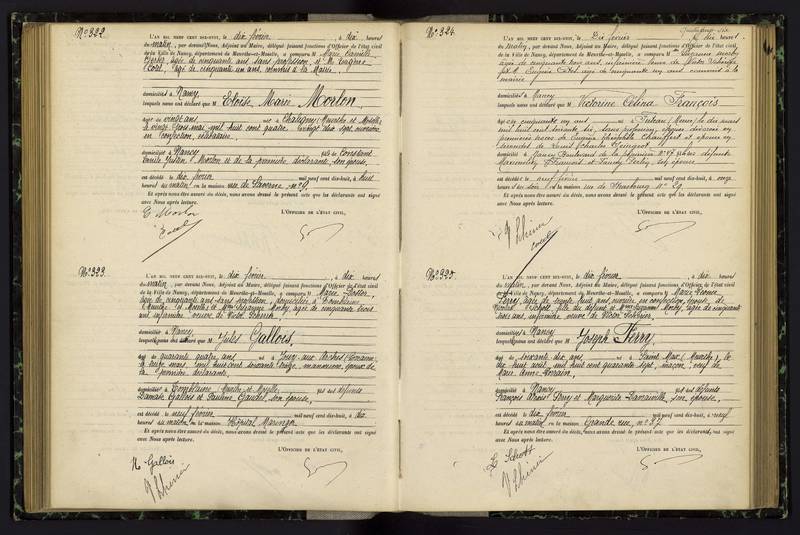 N° 322.
L'AN MIL NEUF CENT DIX-HUIT, le dix février, à dix heures
du matin, par devant Nous, Adjoint au Maire, délégué faisant fonctions d'Officier de l'état civil
de la Ville de Nancy, département de Meurthe-et-Moselle, a comparu M Marie Camille
âgée de cinquante ans, sans profession, et M. Eugène
Cotel, âgé de cinquante un ans, commis à la Mairie,
domiciliés à Nancy
lesquels nous ont déclaré que M Eloïse Marie Morlon
âgée de vingt ans, née à Chaligny (Meurthe et Moselle)
le vingt trois mai mil huit cent quatre vingt dix sept, ouvrière
en confection, célibataire,
domiciliée à Nancy, fille de Constant
Emile Julien Morlon et de la première déclarante, son épouse,
est décédée le dix février mil neuf cent dix-huit, à huit
heures du matin en la maison rue de Saverne, n° 9.
Et après nous être assuré du décès, nous avons dressé le présent acte que les déclarants ont signé
avec Nous après lecture.
L'OFFICIER DE L'ÉTAT CIVIL,
C. Morlon
Cotel
N° 323.
L'AN MIL NEUF CENT DIX-HUIT, le dix février, à dix heures
du matin, par devant Nous, Adjoint au Maire, délégué faisant fonctions d'Officier de l'état civil
de la Ville de Nancy, département de Meurthe-et-Moselle, a comparu M Marie
âgée de cinquante ans, sans profession, domiciliée à Tomblaine
(Meurthe et Moselle) et Mme Suzanne Morby, âgée de cinquante trois
ans, infirmière, veuve de Victor
domiciliée à Nancy
lesquelles nous ont déclaré que M Jules Gallois,
âgé de quarante quatre ans, né à
le treize mai mil huit cent soixante treize, manœuvre, époux de
la première déclarante,
domicilié à Tomblaine (Meurthe et Moselle), fils des défunts
Damas Gallois et Pauline Gaudel, son épouse,
est décédé le neuf février mil neuf cent dix-huit, à dix
heures du matin en la maison Hôpital Maringer
Et après nous être assuré du décès, nous avons dressé le présent acte que les déclarants ont signé
avec Nous après lecture.
L'OFFICIER DE L'ÉTAT CIVIL,
Gallois
N° 324.
L'AN MIL NEUF CENT DIX-HUIT, le Dix février, à dix heures
du matin, par devant Nous, Adjoint au Maire, délégué faisant fonctions d'Officier de l'état civil
de la Ville de Nancy, département de Meurthe-et-Moselle, a comparu M Suzanne Morby
âgée de cinquante trois ans, infirmière, veuve de Victor
et M. Eugène Cotel âgé de cinquante un ans commis à la
mairie
domiciliés à Nancy
lesquels nous ont déclaré que M Victorine Célina François
âgée de cinquante un ans, née à (Meuse) le dix mars
mil huit cent soixante six, sans profession, épouse divorcée en
premières noces de Eugène Théophile Chauffert et épouse en
secondes de Louis Charles
domiciliée à Nancy Boulevard de la n° 47 fille des défunts
François et son épouse
est décédée le neuf février mil neuf cent dix-huit, à onze
heures du soir en la maison rue de Strasbourg n° 29.
Et après nous être assuré du décès, nous avons dressé le présent acte que les déclarants ont signé
avec Nous après lecture.
L'OFFICIER DE L'ÉTAT CIVIL,
Cotel
N° 325.
L'AN MIL NEUF CENT DIX-HUIT, le dix février, à dix heures
du matin, par devant Nous, Adjoint au Maire, délégué faisant fonctions d'Officier de l'état civil
de la Ville de Nancy, département de Meurthe-et-Moselle, a comparu M Marie
Ferry, âgée de trente huit ans, ouvrière en confection, épouse de
Schott, fille du défunt et Mme Suzanne Morby, âgée de cinquante
trois ans, infirmière, veuve de Victor
domiciliées à Nancy
lesquelles nous ont déclaré que M Joseph Ferry,
âgé de soixante dix ans, né à Saint Max (Meurthe), le
dix huit août mil huit cent quarante sept, maçon, veuf de
Marie Anne
domicilié à Nancy, fils des défunts
François Ferry et Marguerite son épouse,
est décédé le dix février mil neuf cent dix-huit, à neuf
heures du matin en la maison Grande rue, n° 37.
Et après nous être assuré du décès, nous avons dressé le présent acte que les déclarants ont signé
avec Nous après lecture.
L'OFFICIER DE L'ÉTAT CIVIL,
L. Schott